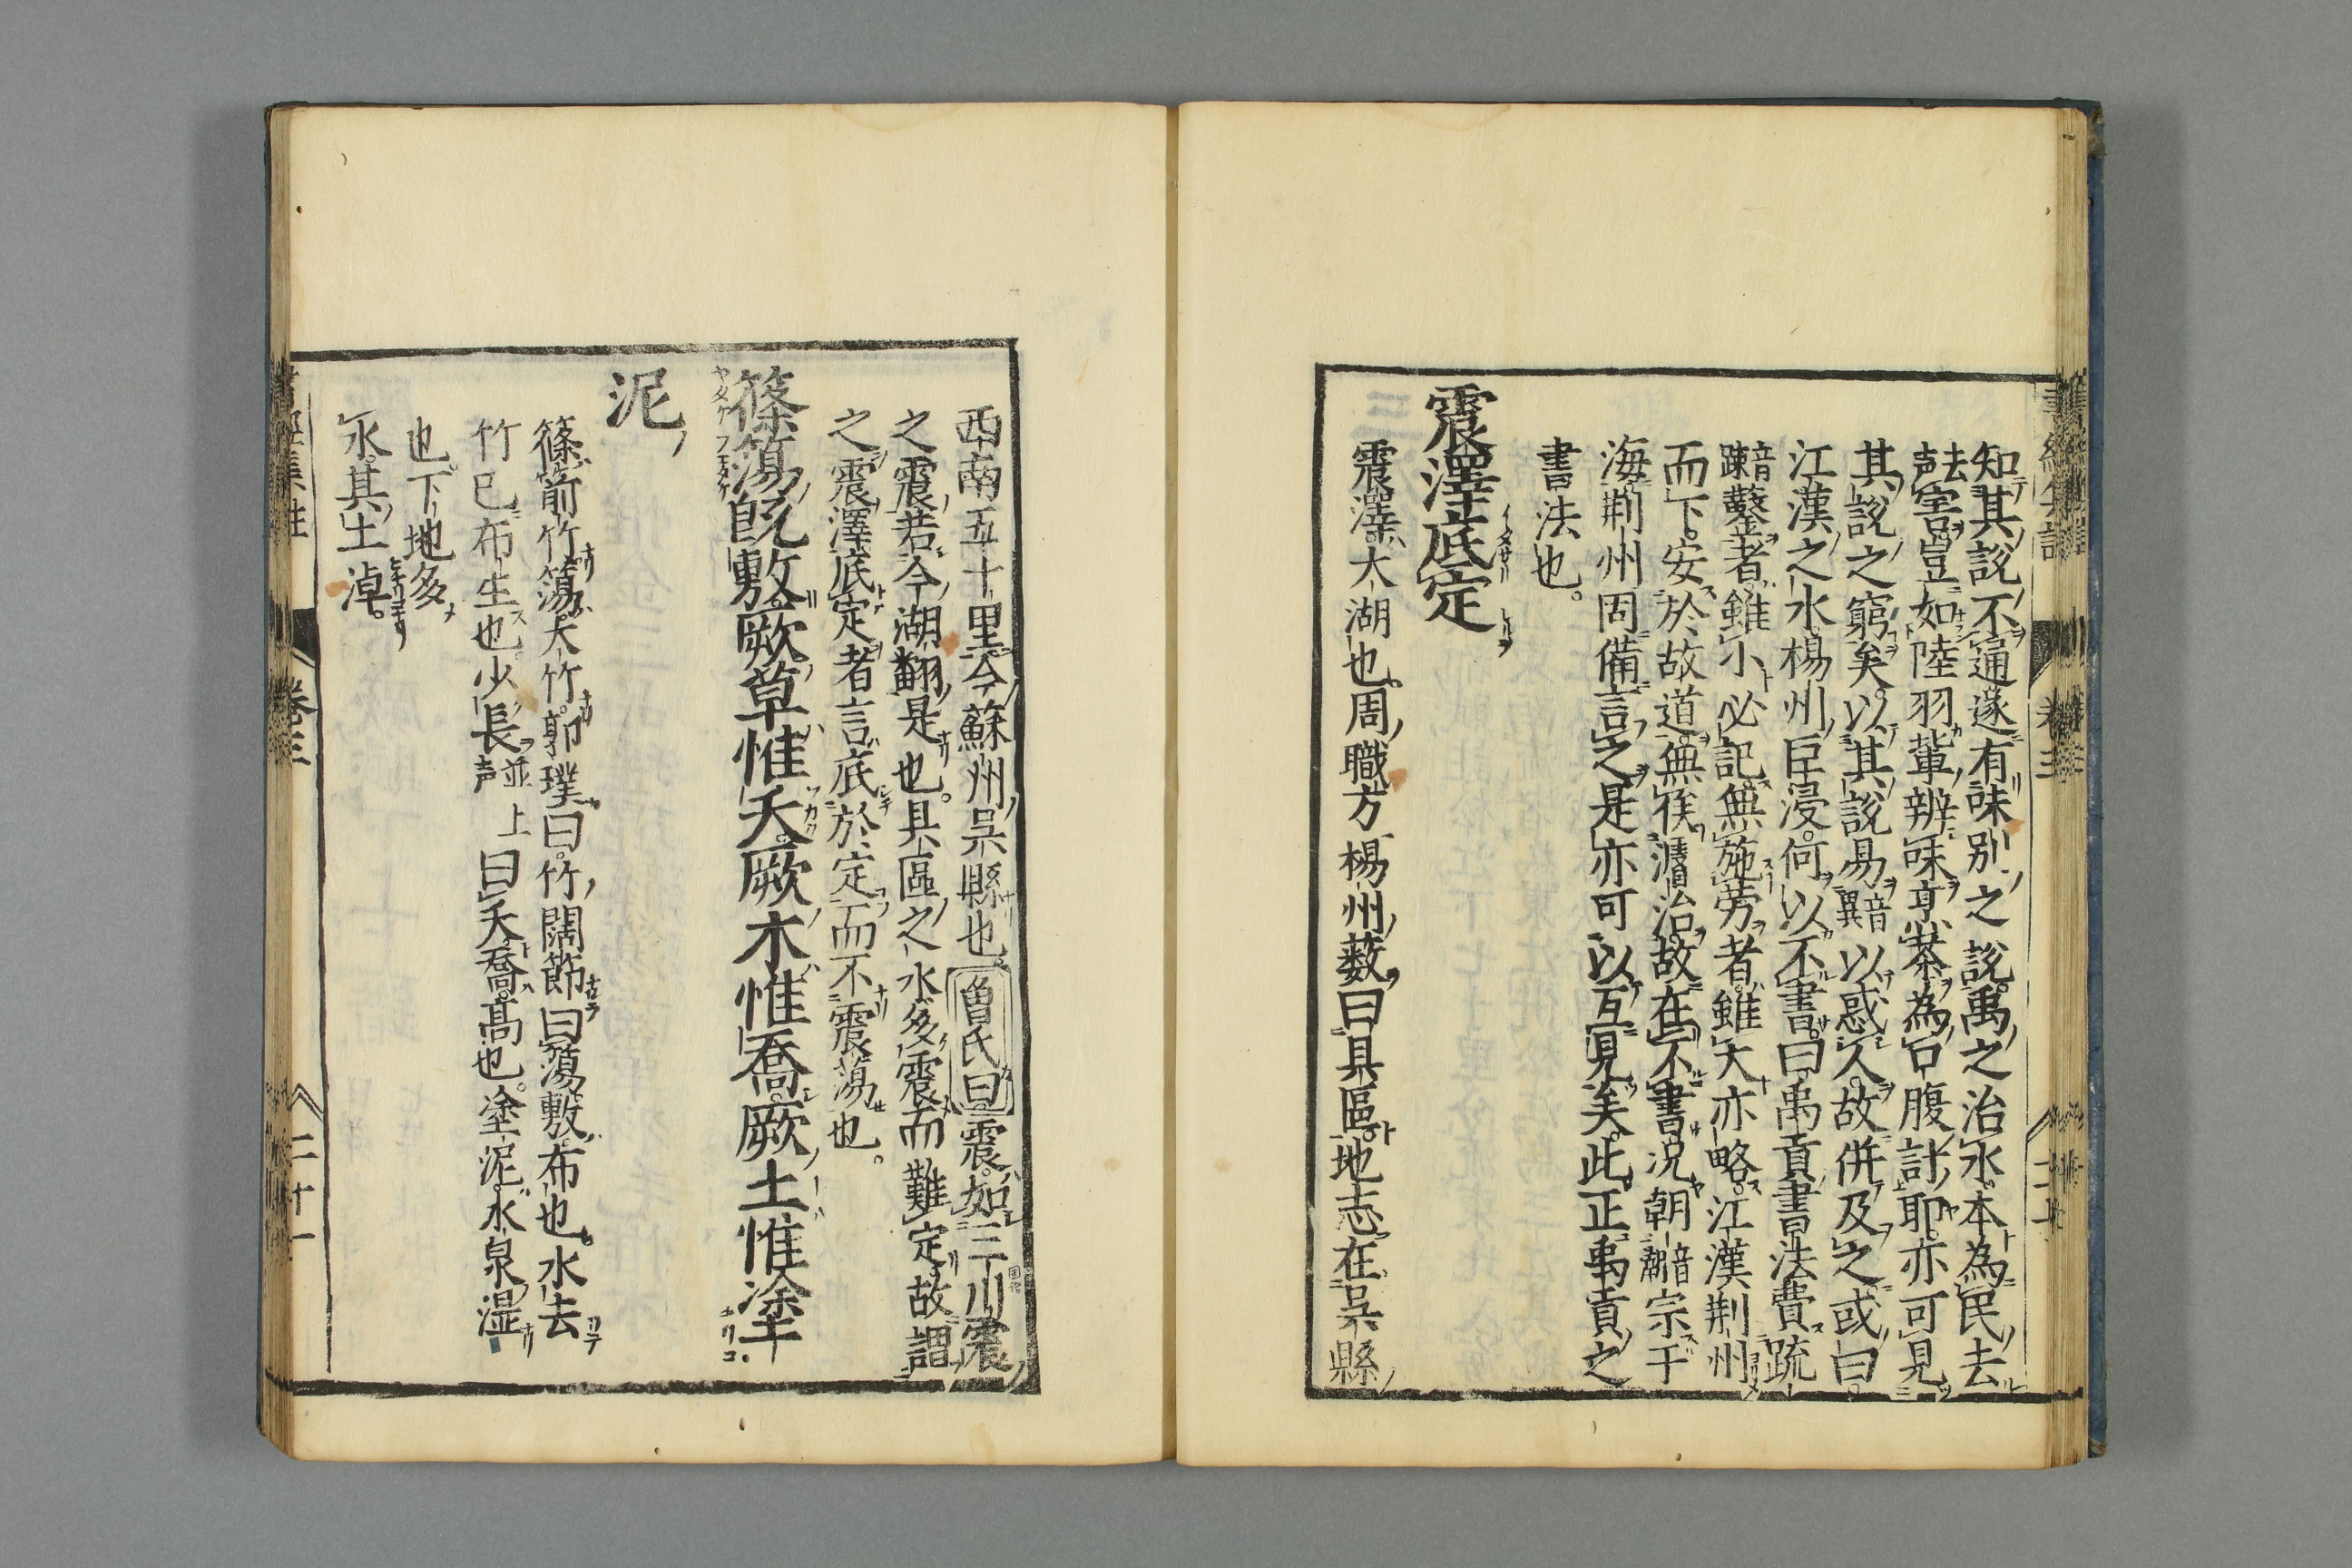 知其説不通遂有味別之説禹之治水本為民去
去声害豈如陸羽輩辨味烹茶為口腹計耶亦可見
其説之窮矣以其説易音異以惑人故併及之或曰
江漢之水楊州巨浸何以不書曰禹貢書法費疏
音踈鑿者雖小必記無施労者雖大亦略江漢荆州
而下安於故道無俟濬治故在不書況朝音潮宗于
海荆州固備言之是亦可以互見矣此正禹貢之
書法也。
震澤底定
震澤大湖也周職方楊州薮曰具區地志在呉縣
西南五十里今蘇州呉縣也曽氏曰震如三川震
之震若今湖翻是也具區之水多震而難定故謂
之震澤底定者言底於定而不震蕩也。
篠簜既敷厥草惟夭厥木惟喬厥土惟塗
泥
篠箭竹簜大竹郭璞曰竹闊節曰簜敷布也水去
竹已布生也少長並上声曰夭喬高也塗泥水泉湿
也下地多
水其土淖。
書経集註 巻三 二十一